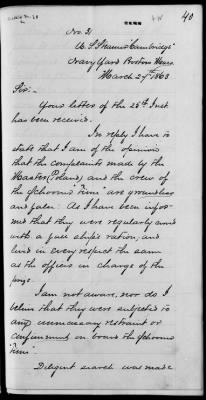 40
No. 31
U. S. Steamer "Cambridge"
Navy Yard Boston Mass.
March 27th 1863
Sir:-
Yours letter of the 25th Inst
has been received.
In reply I have to
state that I am of the opinion
that the complaints made by the
Master (Poland) and the crew of
the Schooner "Time" are groundless
and false. As I have been infor-
med that they were regularly served
with a full ship's ration, and
lived in every respect the same
as the officers in charge of the
prize.
I am not aware, nor do I
believe that they were subjected to
any unnecessary restraint or
confinement on board the Schooner
"Time".
Diligent search was made